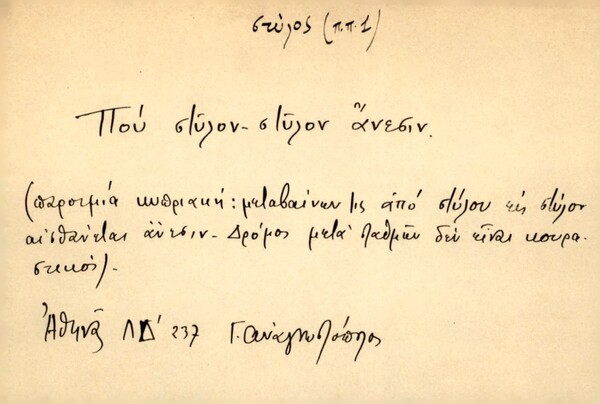 στύλος (π.π. 1)
Πού στύλον - στύλον ἄνεσιν.
(παροιμία κυπριακή: μεταβαίνων τις ἀπό στύλου εἰς στύλον
αἰσθάνεται ἄνεσιν - Δρόμος μετά σταθμῶν δέν εἶναι κουρα-
στικός).
Ἀθηνᾶ ΛΔ' 237 Γ. Αναγνωστόπουλος